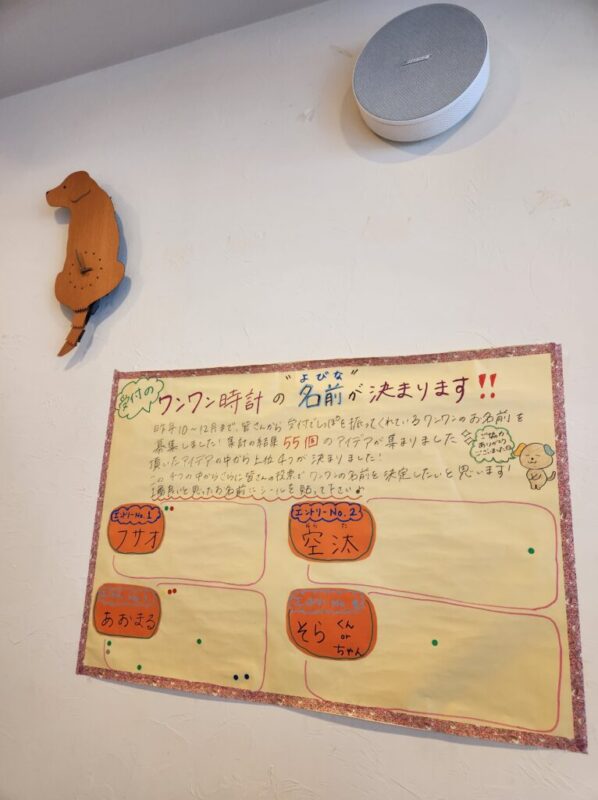 BOSE
受付の
ワンワン時計の"名前"が決まります!!
よびな
昨年10～12月まで、皆さんから受付でしっぽを振ってくれているワンワンのお名前を
募集しました！集計の結果55個のアイデアが集まりました
頂いたアイデアの中から上位4つが決まりました！
この4つの中からさらに皆さんの投票でワンワンの名前を決定したいと思います！
1番良いと思ったお名前にシールを貼って下さい
ご協力
ありがとう
ございました
エントリーNo.1
フサオ
エントリーNo.2
そら た
空汰
あおまる
そら くん
or
ちゃん